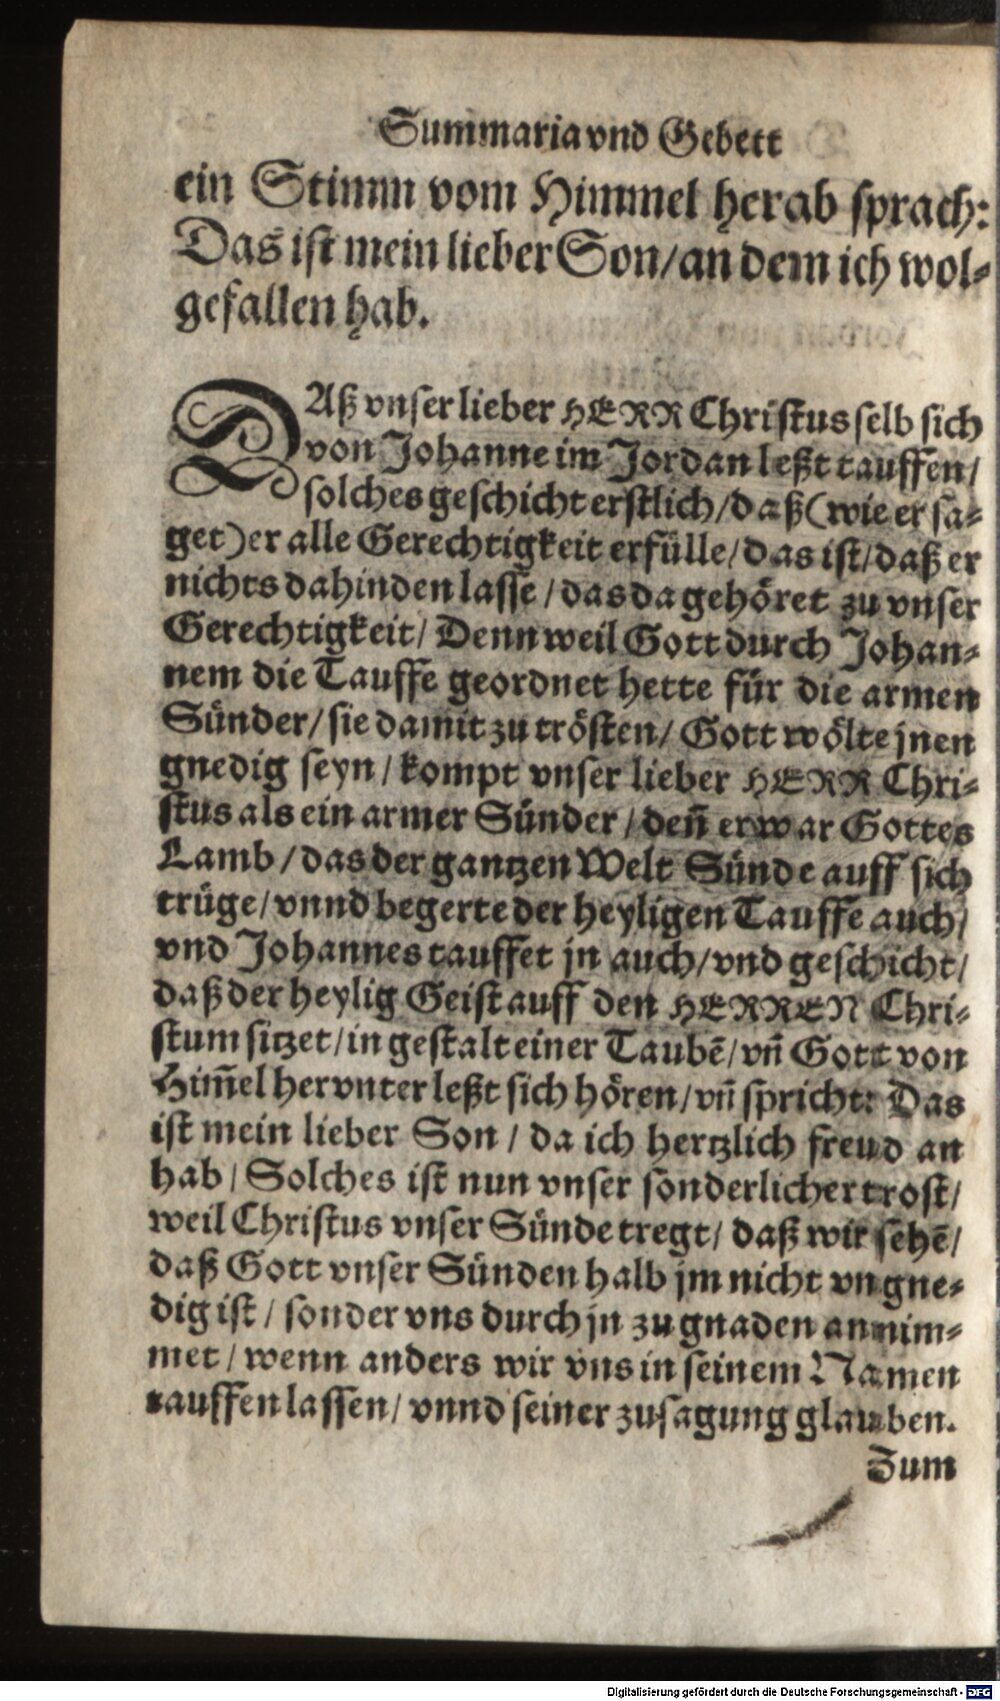 Summaria vnd Gebett
ein Stimm vom Himmel herab sprach:
Das ist mein lieber Son/an dem ich wol-
gefallen hab.
DAß vnser lieber HERR Christus selb sich
von Johanne im Jordan leßt tauffen/
solches geschicht erstlich/daß (wie er sa-
get) er alle Gerechtigkeit erfülle/das ist/daß er
nichts dahinden lasse/das da gehöret zu vnser
Gerechtigkeit/ Denn weil Gott durch Johan-
nem die Tauffe geordnet hette für die armen
Sünder/sie damit zu trösten/ Gott wölte jnen
gnedig seyn/ kompt vnser lieber HERR Chri-
stus als ein armer Sünder/ deñ er war Gottes
Lamb/das der gantzen Welt Sünde auff sich
trüge/vnnd begerte der heyligen Tauffe auch/
vnd Johannes tauffet jn auch/vnd geschicht/
daß der heylig Geist auff den HERREN Chri-
stum sitzet/in gestalt einer Taubẽ/vñ Gott von
Him̃el hervnter leßt sich hören/vñ spricht: Das
ist mein lieber Son/ da ich hertzlich freud an
hab/ Solches ist nun vnser sonderlicher trost/
weil Christus vnser Sünde tregt/ daß wir sehẽ/
daß Gott vnser Sünden halb jm nicht vngne-
dig ist/ sonder vns durch jn zu gnaden annim-
met/ wenn anders wir vns in seinem Namen
tauffen lassen/ vnnd seiner zusagung glauben.
Zum
Digitalisierung gefördert durch die Deutsche Forschungsgemeinschaft - DFG